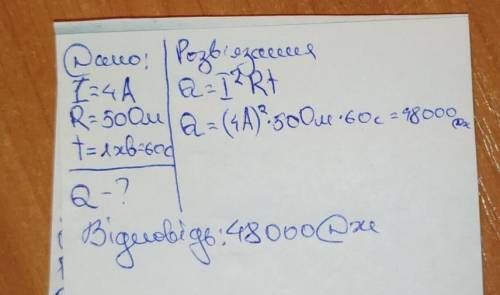 Дано:
I=4A
R=50Ом
t=1хв=60с
Q-?
Розв'язання
Q=I²Rt
Q=(4A)²·50Ом·60с=48000Дж
Відповідь:48000Дж